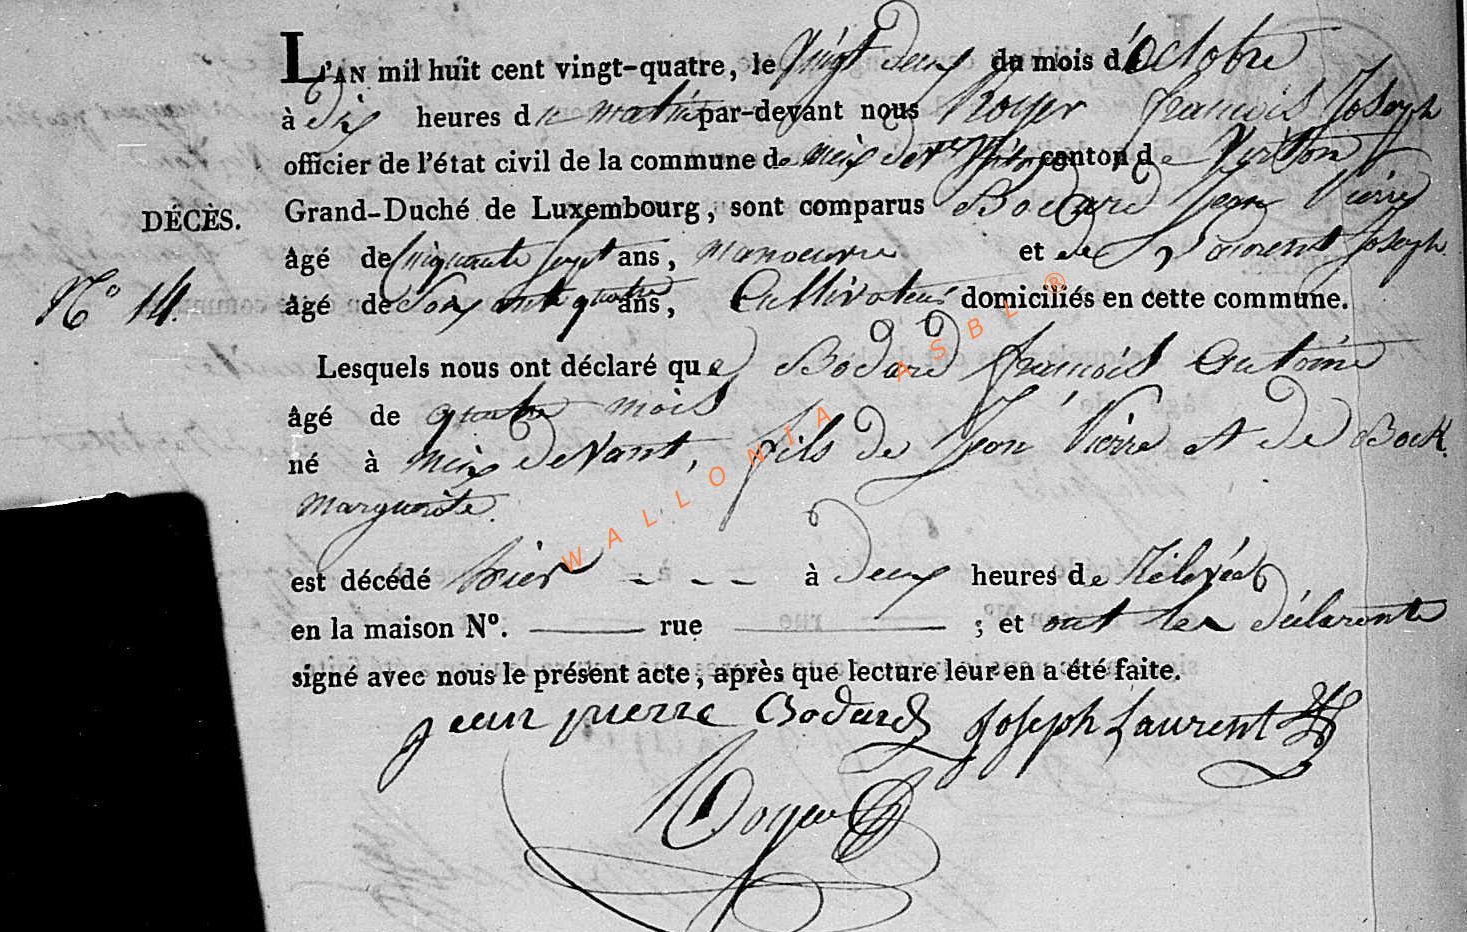 L'AN mil huit cent vingt-quatre, le Vingt deux du mois d'Octobre
à dix heures du matin par-devant nous Royer françois Joseph
officier de l'état civil de la commune de Meix devant Virton canton de Virton
DÉCÈS. Grand-Duché de Luxembourg, sont comparus Bodard Jean Pierre
âgé de Cinquante Sept ans, Manoeuvre et de Laurent Joseph
N° 14. âgé de Soixante quatre ans, Cultivateur domiciliés en cette commune.
Lesquels nous ont déclaré que Bodard françois Antoine
âgé de quatre mois
né à Meix devant, fils de Jean Pierre et de Bock
Marguerite.
est décédé hier à deux heures de Relevée
en la maison N°. rue ; et ont les déclarants
signé avec nous le présent acte, après que lecture leur en a été faite.
jean pierre Bodard Joseph Laurent
Royer
WALLONIA ASBL ®